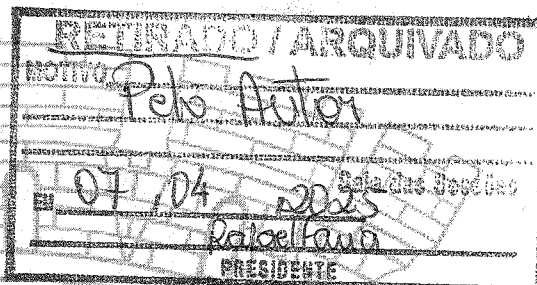 RETIRADO / ARQUIVADO
MOTIVO: Pelo Autor
Sala das Sessões
EM 07 / 04 2025
Rafael Faria
PRESIDENTE